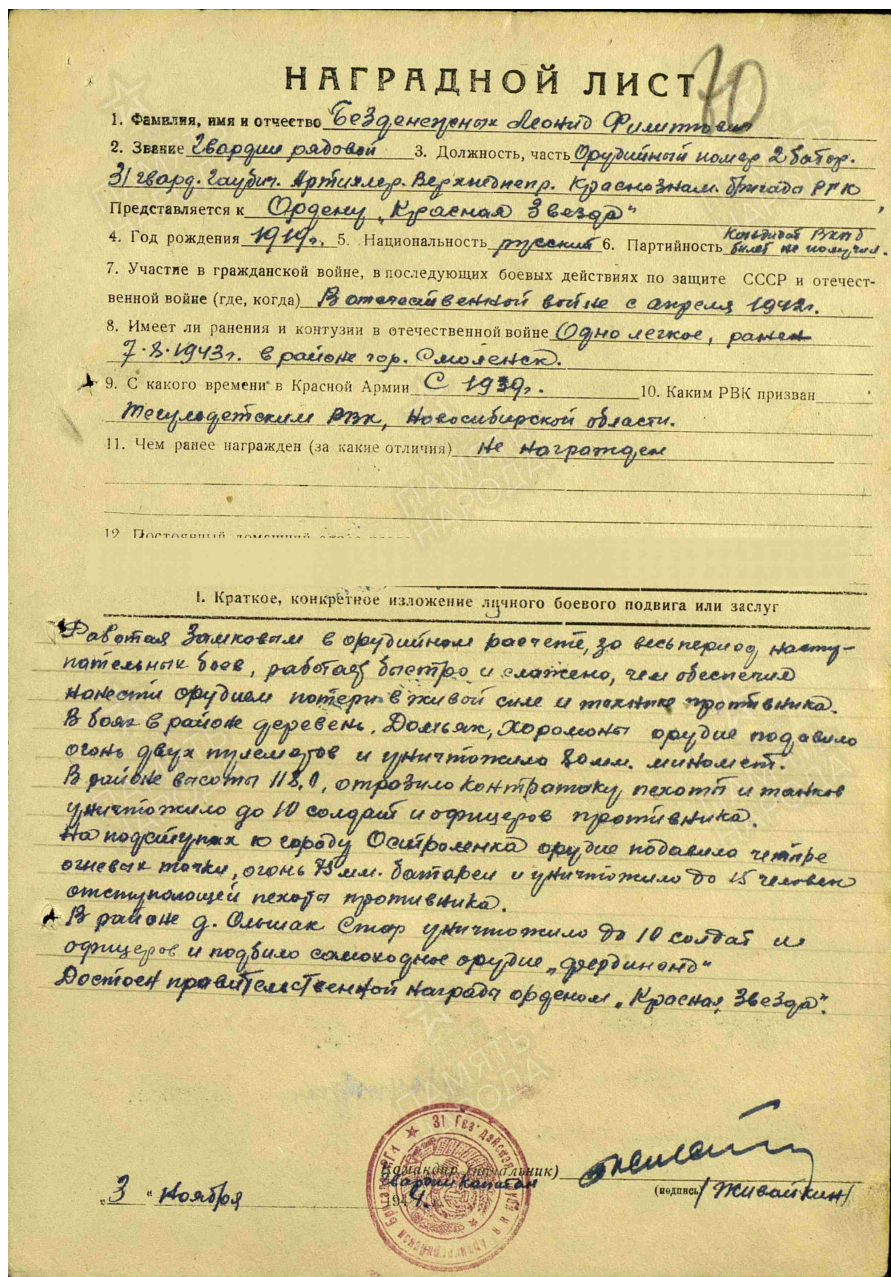 НАГРАДНОЙ ЛИСТ 70
1. Фамилия, имя и отчество Безденежных Леонид Филиппович
2. Звание Гвардии рядовой 3. Должность, часть Орудийный номер 2 батар.
31 гвард. Гаубич. Артиллер. Верхнеднепр. Краснознам. бригада РГК
Представляется к Ордену „Красная Звезда"
4. Год рождения 1919г. 5. Национальность русский 6. Партийность Кандидат ВКПб
билет не получил.
7. Участие в гражданской войне, в последующих боевых действиях по защите СССР и отечест-
венной войне (где, когда) В отечественной войне с апреля 1942г.
8. Имеет ли ранения и контузии в отечественной войне Одно легкое, ранен
7.8.1943г. в районе гор. Смоленск.
9. С какого времени в Красной Армии С 1939г. 10. Каким РВК призван
Тегульдетским РВК, Новосибирской области.
11. Чем ранее награжден (за какие отличия) не награжден
12. Постоянный домашний
I. Краткое, конкретное изложение личного боевого подвига или заслуг
Работая Замковым в орудийном расчете, за весь период насту-
пательных боев, работает быстро и слажено, чем обеспечил
нанести орудием потери в живой силе и технике противника.
В боях в районе деревень, Домьяк, Хоромоны орудие подавило
огонь двух пулеметов и уничтожило 80мм. миномет.
В районе высоты 118,0, отразило контратаку пехоты и танков
уничтожило до 10 солдат и офицеров противника.
На подступах к городу Остроленка орудие подавило четыре
огневых точки, огонь 75мм. батареи и уничтожило до 15 человек
отступающей пехоты противника.
В районе д. Ольшак Стар уничтожило до 10 солдат и
офицеров и подбило самоходное орудие „Фердинанд"
Достоен правительственной награды орденом „Красная Звезда".
Командир (начальник)
гвардии капитан
„3" Ноября 1944.
(подпись) /Живайкин/
ПАМЯТЬ НАРОДА